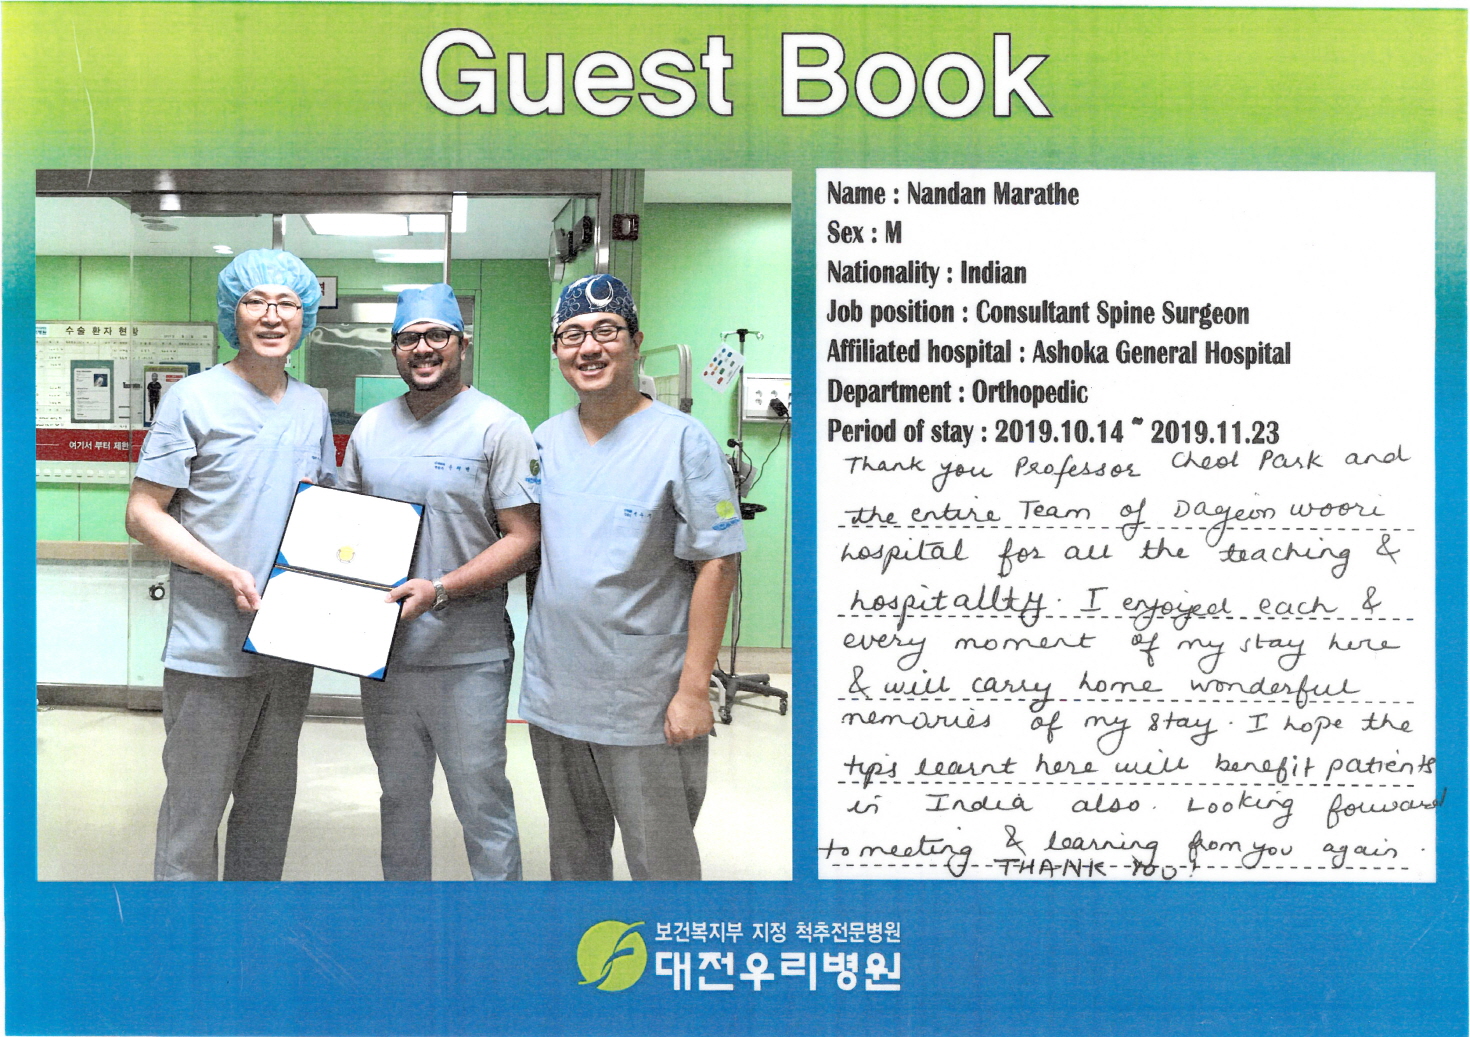 Guest Book
Name : Nandan Marathe
Sex : M
Nationality : Indian
Job position : Consultant Spine Surgeon
Affiliated hospital : Ashoka General Hospital
Department : Orthopedic
Period of stay : 2019.10.14 ~ 2019.11.23
Thank you Professor Cheol Park and
the entire Team of Dageon woori
hospital for all the teaching &
hospitallty. I enjoyed each &
every moment of my stay here
& will carry home wonderful
memories of my stay. I hope the
tips learnt here will benefit patients
in India also. Looking forward
to meeting & learning from you again.
THANK YOU!
수술 환자 현황
여기서 부터 제한
보건복지부 지정 척추전문병원
대전우리병원